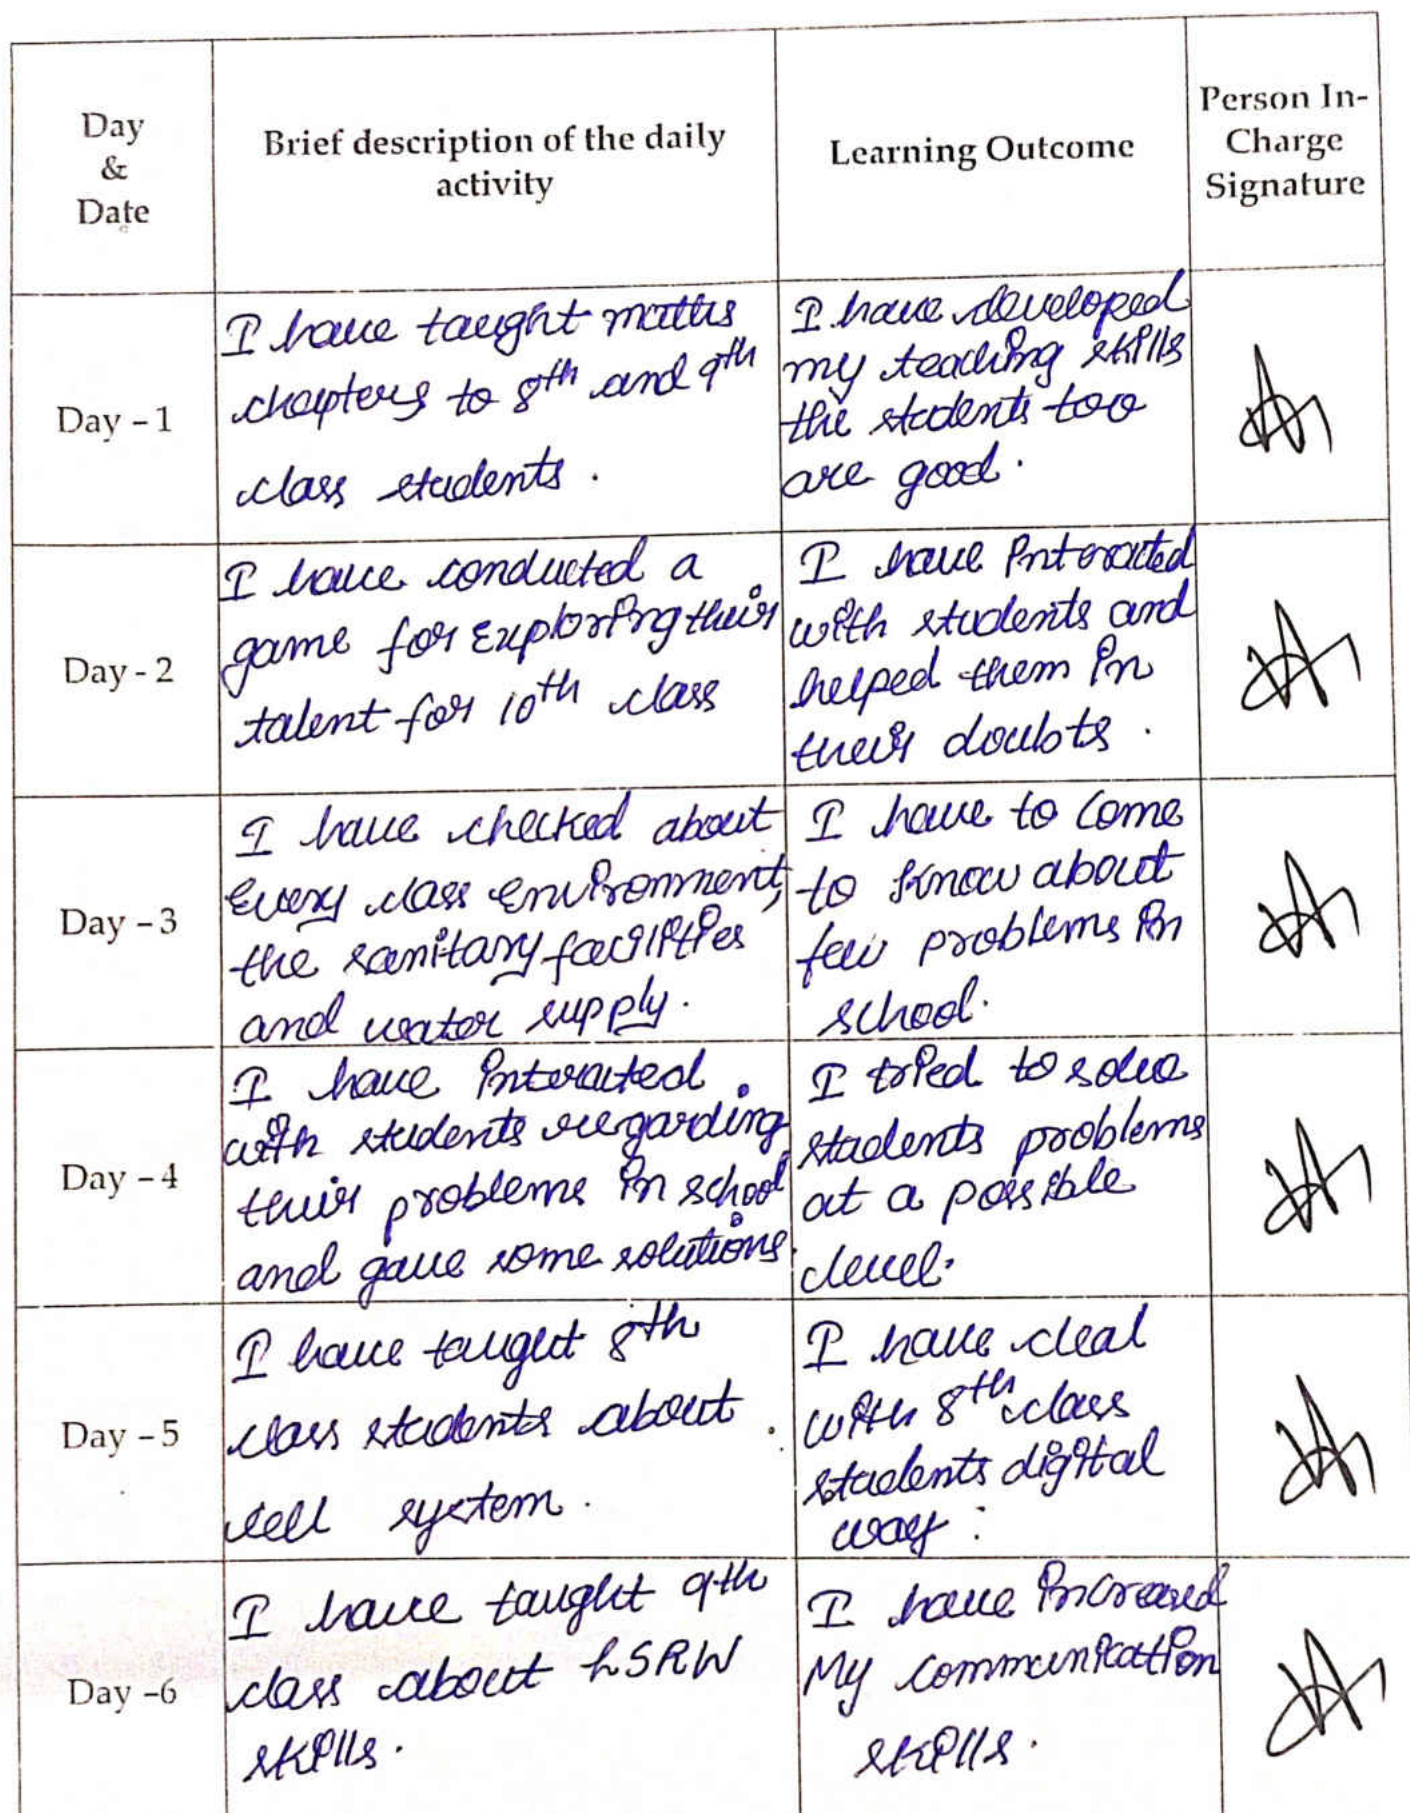 Day
&
Date
Brief description of the daily
activity
Learning Outcome
Person In-
Charge
Signature
Day - 1
I have taught maths
chapters to 8th and 9th
class students.
I have developed
my teaching skills
the students too
are good.
Day - 2
I have conducted a
game for exploring their
talent for 10th class
I have interacted
with students and
helped them in
their doubts.
Day - 3
I have checked about
Every class environment,
the sanitary facilities
and water supply.
I have to come
to know about
few problems in
school.
Day - 4
I have interacted
with students regarding
their problems in school
and gave some solutions.
I tried to solve
students problems
at a possible
level.
Day - 5
I have taught 8th
class students about
cell system.
I have deal
with 8th class
students digital
way.
Day -6
I have taught 9th
class about LSRW
skills.
I have increased
My communication
skills.